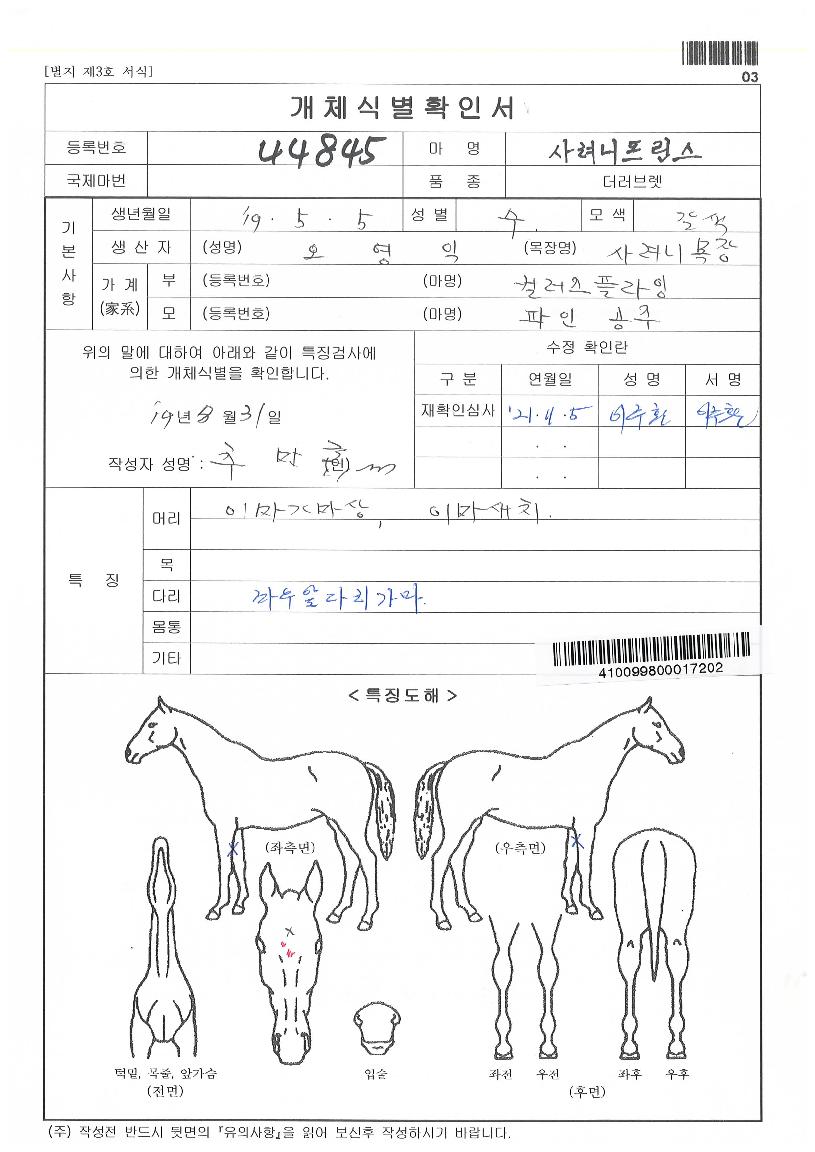 [별지 제3호 서식]
03
개체식별확인서
등록번호 44845 마 명 사려니프린스
국제마번 품 종 더러브렛
기본사항
생년월일 '19 . 5 . 5 성 별 수. 모 색 갈색
생 산 자 (성명) 오 영 익 (목장명) 사려니목장
가 계 (家系) 부 (등록번호) (마명) 컬러즈플라잉
모 (등록번호) (마명) 파인 공주
위의 말에 대하여 아래와 같이 특징검사에
의한 개체식별을 확인합니다.
'19년 월 31일
작성자 성명 : 추 만 (인)
수정 확인란
구 분 연월일 성 명 서 명
재확인심사 '21.11.5 이주환 이주환
. .
. .
특 징
머리 이마가마상, 이마새치.
목
다리 좌우앞다리가마.
몸통
기타
410099800017202
< 특징도해 >
(좌측면) (우측면)
턱밑, 목줄, 앞가슴
(전면)
입술
좌전 우전 좌후 우후
(후면)
(주) 작성전 반드시 뒷면의 『유의사항』을 읽어 보신후 작성하시기 바랍니다.